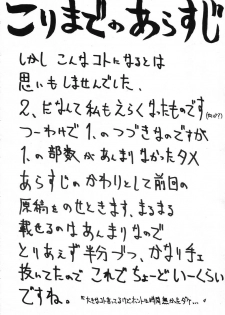 こりまでのあらすじ
しかし こんなコトになるとは
思いもしませんでした。
2、だなんて私もえらくなったものです
つーわけで 1、のつづきなのですが
1、の部数があんまりなかったタメ
あらすじのかわりとして前回の
原稿をのせときます、まるまる
載せるのはあんまりなので
とりあえず半分づつ、かなりチェ
抜いてたので これでちょーどいーくらい
ですね。